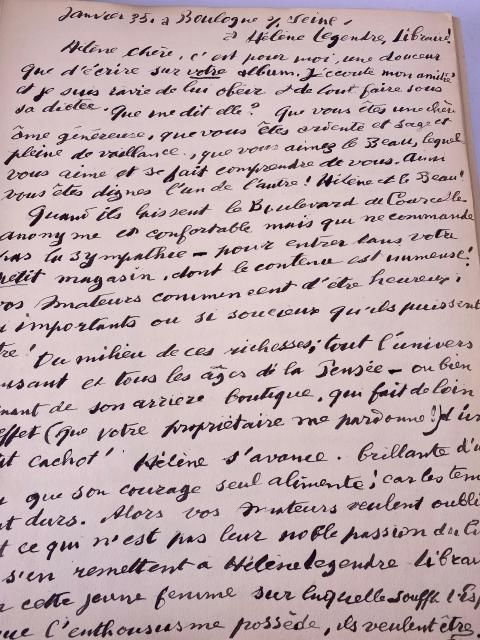 Janvier 35. à Boulogne s/ Seine,
à Hélène Legendre, Libraire!
Hélène chère, c'est pour moi, une douceur
que d'écrire sur votre album. J'écoute mon amitié
et je suis ravie de lui obéir et de tout faire sous
sa dictée. Que me dit elle? Que vous êtes une chère
âme généreuse, que vous êtes ardente et sage et
pleine de vaillance, que vous aimez le Beau, lequel
vous aime et se fait comprendre de vous. Aussi
vous êtes dignes l'un de l'autre! Hélène et le Beau!
Quand ils laissent le Boulevard de Courcelles
anonyme et confortable mais qui ne commande
pas la sympathie – pour entrer dans votre
petit magasin, dont le contenu est immense!
vos Amateurs commencent d'être heureux,
si importants ou si soucieux qu'ils puissent
être! Du milieu de ces richesses; tout l'univers
pensant et tous les âges de la Pensée – ou bien
venant de son arrière boutique, qui fait de loin
effet (que votre propriétaire me pardonne!) d'un
cachot! Hélène s'avance. brillante d'un
que son courage seul alimente; car les temps
sont durs. Alors vos Amateurs veulent oublier
ce qui n'est pas leur noble passion du
s'en remettent à Hélène Legendre libraire
cette jeune femme sur laquelle souffle l'Esprit
que l'enthousiasme possède, ils veulent être